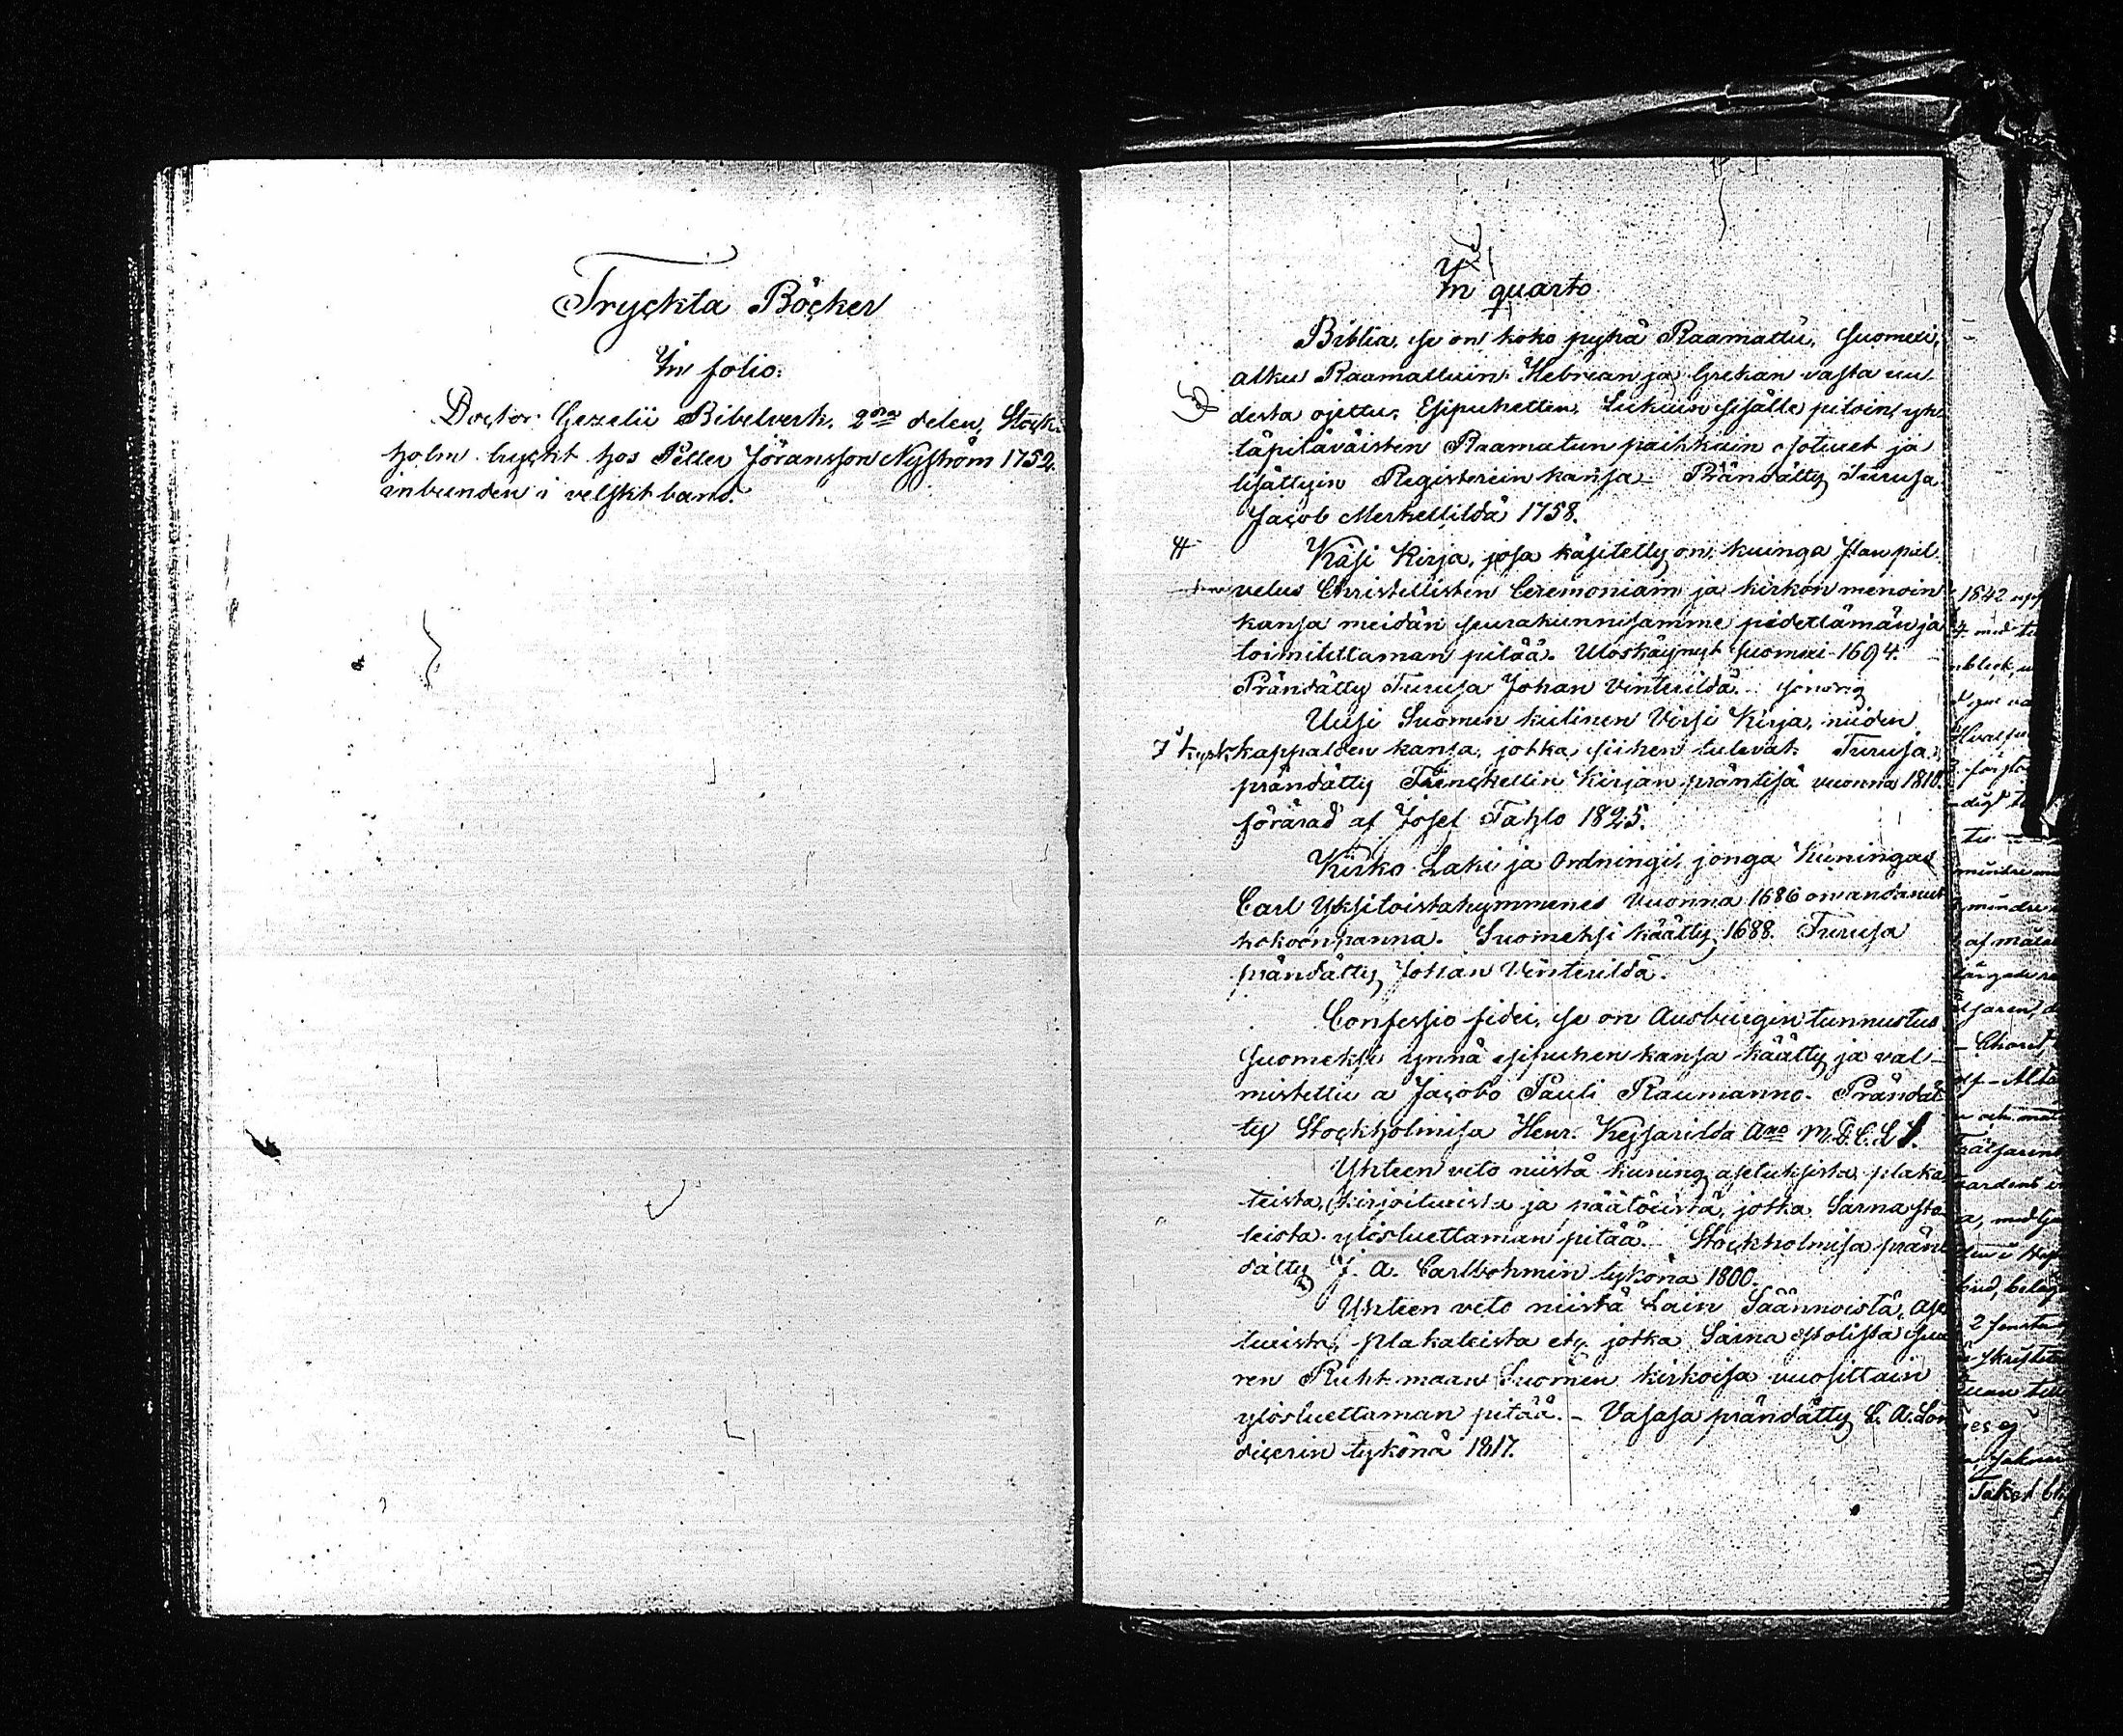 Tryckta Böcker
In folio.
Doctor Gezelii Bibelverk. 2dra delen, Stock-
holm tryckt hos Petter Jöransson Nyström 1752.
inbunden i velskt band.
In quarto.
Biblia, se on koko pyhä Raamattu, Suomexi,
alku Raamattuin Hebrean ja Grekan vasta uu-
desta ojettu, Esipuhetten, Lukuin sisälle pitoin, yh-
täpitäväisten Raamatun paikkain osotuxet ja
lisättyin Registerein kansa. Prändätty Turusa
Jacob Merkellildä 1758.
Käsi Kirja, josa käsitetty on, kuinga Jlan pal-
velus Christillisten Ceremoniain ja kirkon menoin
kansa meidän seurakunnisamme pidettämän ja
toimitettaman pitää. Uloskäynyt Suomexi 1694.
Prändätty Turusa Johan Vinterildä.
Uusi Suomen kielinen Virsi Kirja, niiden
7 st kappalden kansa, jotka siihen tulevat. Turusa,
prändätty Frenckellin Kirjan präntisä vuonna 1818.
förärad af Josef Tahlo 1825.
Kirko Laki ja Ordningi, jonga Kuningas
Carl Yksitoistakymmenes Vuonna 1686 on andanut
kokoonpanna. Suomeksi käätty 1688. Turusa
prändätty Johan Vinterildä.
Confessio fidei, se on Ausburgin tunnustus
Suomeksi ynnä esipuhen kansa käätty ja val-
mistettu a Jacobo Pauli Raumanno. Prändät-
ty Stockholmisa Henr. Keysarilda Ano M.D.C.L I.
Yhteen veto niistä kuning. asetuksista plaka-
teista, kirjoituxista ja päätöxistä, jotka Sarnasto-
leista ylösluettaman pitää. Stockholmisa prän-
dätty J. A. Carlbohmin tykönä 1800.
Yhteen veto niistä Lain Säännoistä, ase-
tuxista, plakateista etc. jotka Sarnastolista Suu-
ren Ruhtinaan maan Suomen kirkoisa vuosittain
ylösluettaman pitää. - Vasasa prändätty C. A. Lon-
dicerin tykönä 1817.
1842